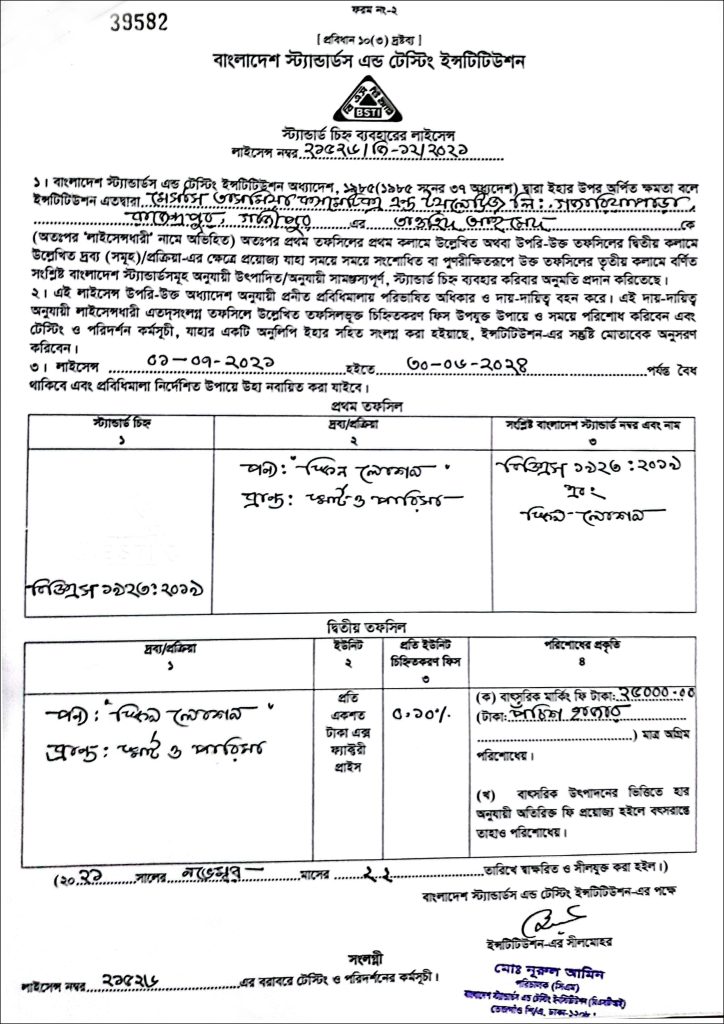 ফরম নং-২
39582
[ প্রবিধান ১০(৩) দ্রষ্টব্য ]
বাংলাদেশ স্ট্যান্ডার্ডস এন্ড টেস্টিং ইন্সটিটিউশন
BSTI
স্ট্যান্ডার্ড চিহ্ন ব্যবহারের লাইসেন্স
লাইসেন্স নম্বর
১। বাংলাদেশ স্ট্যান্ডার্ডস এন্ড টেস্টিং ইন্সটিটিউশন অধ্যাদেশ, ১৯৮৫(১৯৮৫ সনের ৩৭ অধ্যদেশ) দ্বারা ইহার উপর অর্পিত ক্ষমতা বলে
ইন্সটিটিউশন এতদ্বারা, মেসার্স এন্ড লি:
গাজীপুর এর কে
(অতঃপর ‘লাইসেন্সধারী’ নামে অভিহিত) অতঃপর প্রথম তফসিলের প্রথম কলামে উল্লেখিত অথবা উপরি-উক্ত তফসিলের দ্বিতীয় কলামে
উল্লেখিত দ্রব্য (সমূহ)/প্রক্রিয়া-এর ক্ষেত্রে প্রয়োজ্য যাহা সময়ে সময়ে সংশোধিত বা পুণরীক্ষিতরূপে উক্ত তফসিলের তৃতীয় কলামে বর্ণিত
সংশ্লিষ্ট বাংলাদেশ স্ট্যান্ডার্ডসমূহ অনুযায়ী উৎপাদিত/অনুযায়ী সামঞ্জস্যপূর্ণ, স্ট্যান্ডার্ড চিহ্ন ব্যবহার করিবার অনুমতি প্রদান করিতেছে।
২। এই লাইসেন্স উপরি-উক্ত অধ্যাদেশ অনুযায়ী প্রনীত প্রবিধিমালায় পরিভাষিত অধিকার ও দায়-দায়িত্ব বহন করে। এই দায়-দায়িত্ব
অনুযায়ী লাইসেন্সধারী এতদ্‌সংলগ্ন তফসিলে উল্লেখিত তফসিলভূক্ত চিহ্নিতকরণ ফিস উপযুক্ত উপায়ে ও সময়ে পরিশোধ করিবেন এবং
টেস্টিং ও পরিদর্শন কর্মসূচী, যাহার একটি অনুলিপি ইহার সহিত সংলগ্ন করা হইয়াছে, ইন্সটিটিউশন-এর সন্তুষ্টি মোতাবেক অনুসরণ
করিবেন।
৩। লাইসেন্স ০১-০৭-২০২১ হইতে ৩০-০৬-২০২৪ পর্যন্ত বৈধ
থাকিবে এবং প্রবিধিমালা নির্দেশিত উপায়ে উহা নবায়িত করা যাইবে।
প্রথম তফসিল
স্ট্যান্ডার্ড চিহ্ন
১
দ্রব্য/প্রক্রিয়া
২
সংশ্লিষ্ট বাংলাদেশ স্ট্যান্ডার্ড নম্বর এবং নাম
৩
পন্য: "স্কিন লোশন"
ব্রান্ড: স্মার্ট ও
বিডিএস ১৯২৩:২০১৯
এবং
স্কিন-লোশন
বিডিএস ১৯২৩:২০১৯
দ্বিতীয় তফসিল
দ্রব্য/প্রক্রিয়া
১
ইউনিট
২
প্রতি ইউনিট
চিহ্নিতকরণ ফিস
৩
পরিশোধের প্রকৃতি
৪
পন্য: "স্কিন লোশন"
ব্রান্ড: স্মার্ট ও
প্রতি
একশত
টাকা এক্স
ফ্যাক্টরী
প্রাইস
০.১০%
(ক) বাৎসরিক মার্কিং ফি টাকা: ২৫০০০.০০
(টাকা: পঁচিশ হাজার
) মাত্র অগ্রিম
পরিশোধেয়।
(খ) বাৎসরিক উৎপাদনের ভিত্তিতে হার
অনুযায়ী অতিরিক্ত ফি প্রয়োজ্য হইলে বৎসরান্তে
তাহাও পরিশোধেয়।
(২০২১ সালের নভেম্বর মাসের ২২ তারিখে স্বাক্ষরিত ও সীলযুক্ত করা হইল।)
বাংলাদেশ স্ট্যান্ডার্ডস এন্ড টেস্টিং ইন্সটিটিউশন-এর পক্ষে
ইন্সটিটিউশন-এর সীলমোহর
সংলগ্নী
লাইসেন্স নম্বর এর বরাবরে টেস্টিং ও পরিদর্শনের কর্মসূচী।
মোঃ নূরুল আমিন
পরিচালক (সিএম)
বাংলাদেশ স্ট্যান্ডার্ডস এন্ড টেস্টিং ইন্সটিটিউশন (বিএসটিআই)
তেজগাঁও শি/এ, ঢাকা-১২০৮।